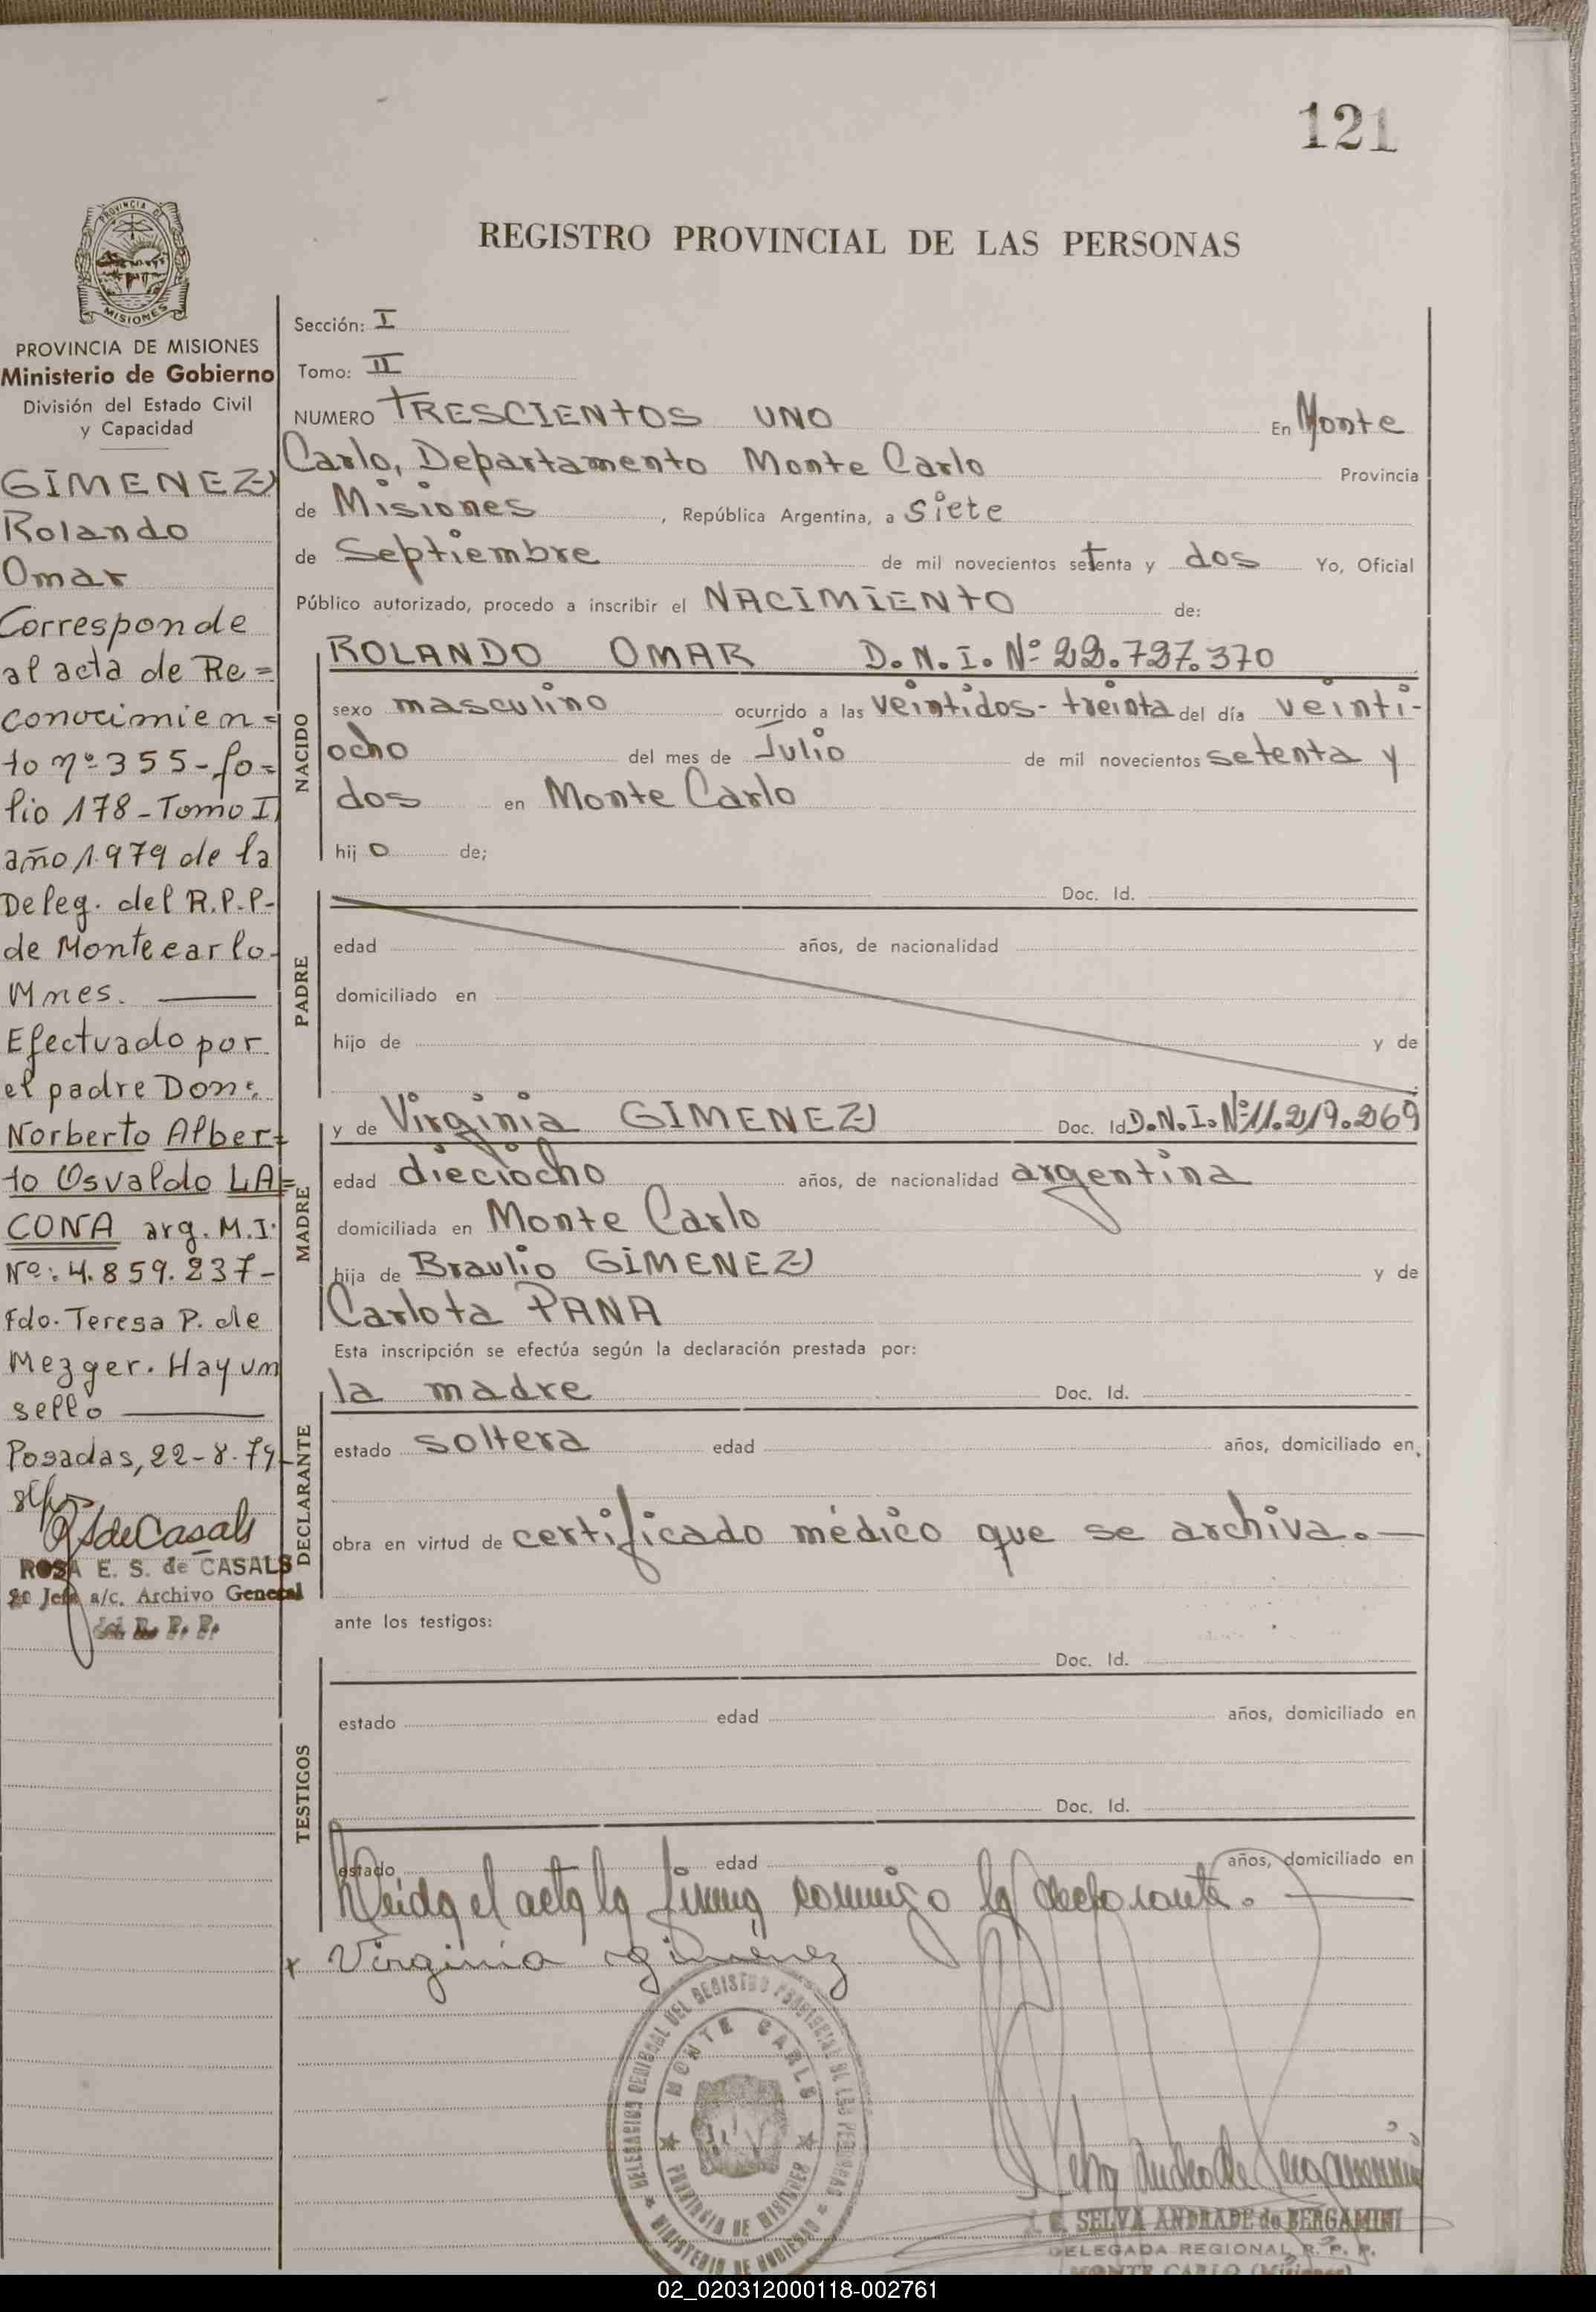 121
REGISTRO PROVINCIAL DE LAS PERSONAS
PROVINCIA DE
MISIONES
PROVINCIA DE MISIONES
Ministerio de Gobierno
División del Estado Civil
y Capacidad
GIMENEZ
Rolando
Omar
Corresponde
al acta de Re=
conocimien=
to nº 355-fo=
lio 178-Tomo I
año 1.979 de la
Deleg. del R.P.P-
de Montecarlo-
Mnes.
Efectuado por
el padre Don:
Norberto Alber=
to Osvaldo LA=
CONA arg. M.I.
Nº: 4.859.237-
Fdo. Teresa P. de
Mezger. Hay un
sello
Posadas, 22-8-79-
ROSA E. S. de CASALS
Jefe a/c. Archivo General
Sección: I
Tomo: II
NUMERO TRESCIENTOS UNO En Monte
Carlo, Departamento Monte Carlo Provincia
de Misiones, República Argentina, a siete
de Septiembre de mil novecientos setenta y dos Yo, Oficial
Público autorizado, procedo a inscribir el NACIMIENTO de:
NACIDO
ROLANDO OMAR D.N.I. Nº 22.737.370
sexo masculino ocurrido a las veintidos-treinta del día veinti-
ocho del mes de Julio de mil novecientos setenta y
dos en Monte Carlo
hijo de;
PADRE
Doc. Id.
edad años, de nacionalidad
domiciliado en
hijo de y de
MADRE
y de Virginia GIMENEZ Doc. Id D.N.I. Nº 11.219.269
edad dieciocho años, de nacionalidad argentina
domiciliada en Monte Carlo
hija de Braulio GIMENEZ y de
Carlota PANA
Esta inscripción se efectúa según la declaración prestada por:
DECLARANTE
la madre Doc. Id.
estado soltera edad años, domiciliado en
obra en virtud de certificado médico que se archiva.
ante los testigos:
TESTIGOS
Doc. Id.
estado edad años, domiciliado en
Doc. Id.
estado edad años, domiciliado en
Leida el acta la firma conmigo la declarante.
x Virginia Gimenez
DELEGACION REGIONAL DEL REGISTRO PROVINCIAL DE LAS PERSONAS
MONTE CARLO
PROVINCIA DE MISIONES
MINISTERIO DE GOBIERNO
SELVA ANDRADE de BERGAMINI
DELEGADA REGIONAL R. P. P.
MONTE CARLO (Misiones)
02_020312000118-002761